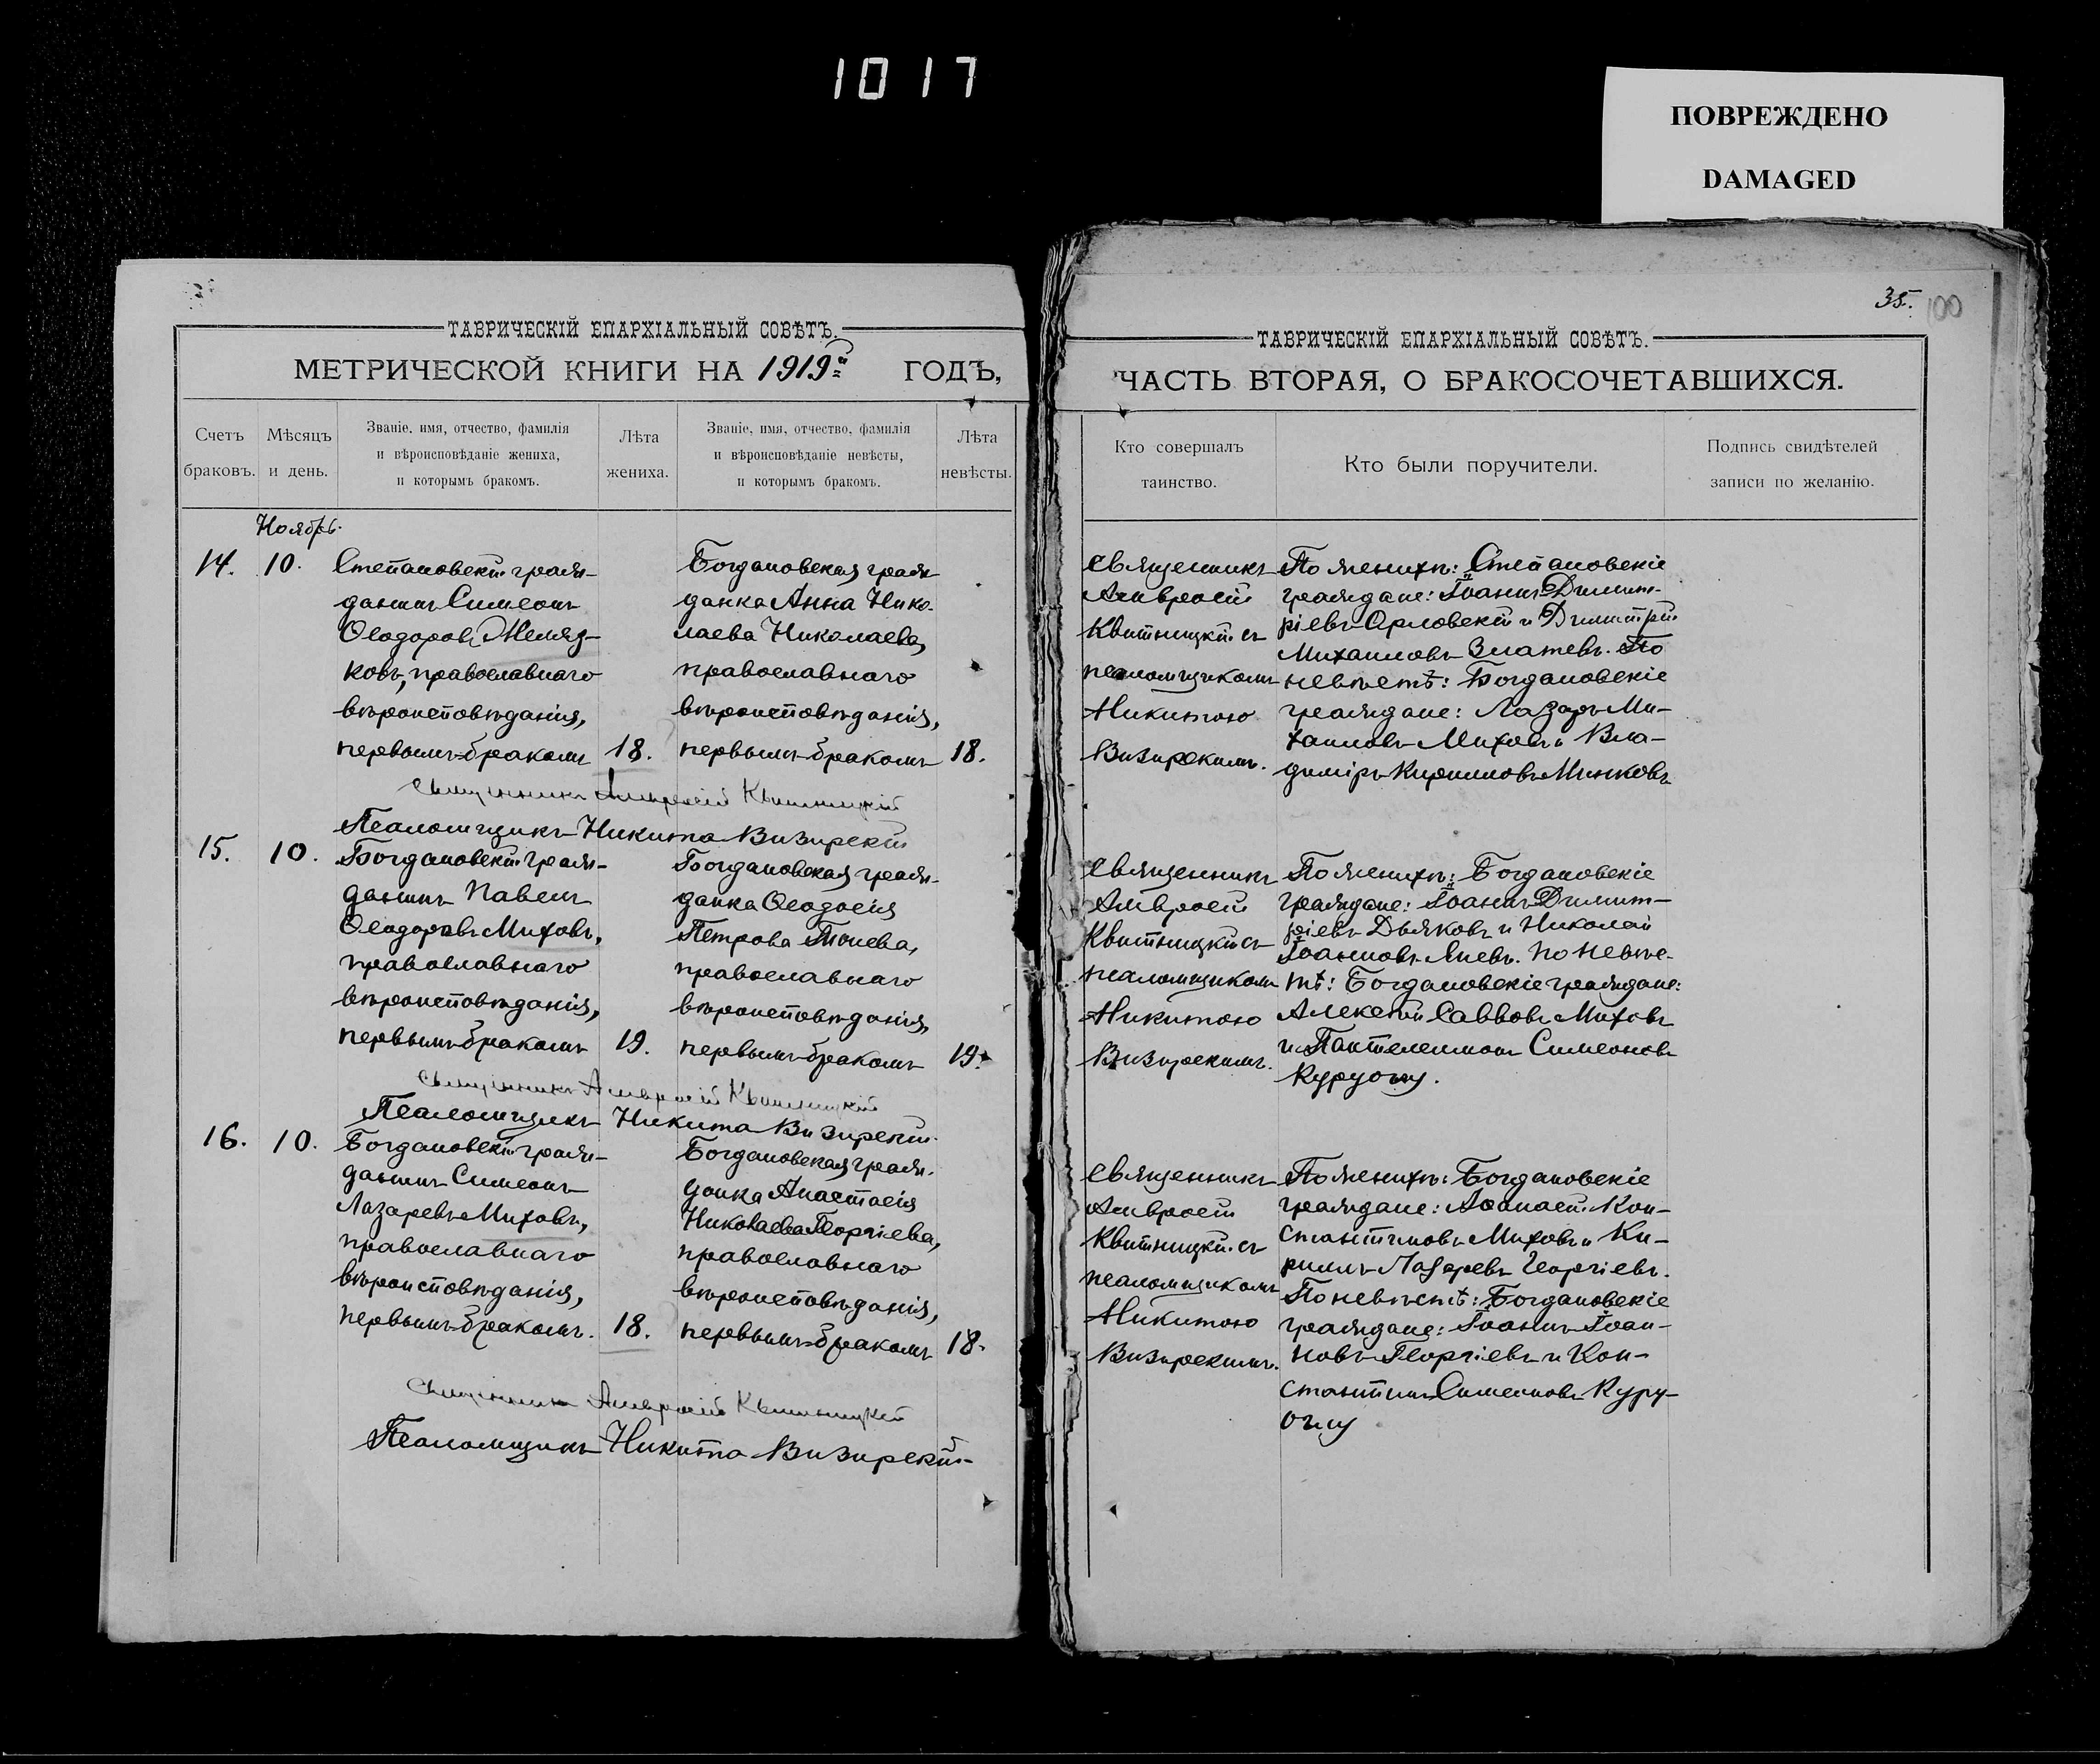 1017
ПОВРЕЖДЕНО
DAMAGED
ТАВРИЧЕСКІЙ ЕПАРХІАЛЬНЫЙ СОВѢТЪ.
МЕТРИЧЕСКОЙ КНИГИ НА 1919й ГОДЪ,
Счетъ браковъ.
Мѣсяцъ и день.
Званіе, имя, отчество, фамилія
и вѣроисповѣданіе жениха,
и которымъ бракомъ.
Лѣта жениха.
Званіе, имя, отчество, фамилія
и вѣроисповѣданіе невѣсты,
и которымъ бракомъ.
Лѣта невѣсты.
Ноябрь.
14.
10.
Степановскій граж-
данинъ Симеонъ
Ѳеодоровъ
ковъ, православнаго
вѣроисповѣданія,
первымъ бракомъ
18.
Богдановская граж-
данка Анна Нико-
лаева Николаева,
православнаго
вѣроисповѣданія,
первымъ бракомъ
18.
Священникъ Амвросій Квитницкій
Псаломщикъ Никита Визирскій
15.
10.
Богдановскій граж-
данинъ Павелъ
Ѳеодоровъ Миховъ,
православнаго
вѣроисповѣданія,
первымъ бракомъ
19.
Богдановская граж-
данка Ѳеодосія
Петрова Тонева,
православнаго
вѣроисповѣданія,
первымъ бракомъ
19.
Священникъ Амвросій Квитницкій
Псаломщикъ Никита Визирскій
16.
10.
Богдановскій граж-
данинъ Симеонъ
Лазаревъ Миховъ,
православнаго
вѣроисповѣданія,
первымъ бракомъ.
18.
Богдановская граж-
данка Анастасія
Николаева Георгіева,
православнаго
вѣроисповѣданія,
первымъ бракомъ
18.
Священникъ Амвросій Квитницкій
Псаломщикъ Никита Визирскій
35.
100
ТАВРИЧЕСКІЙ ЕПАРХІАЛЬНЫЙ СОВѢТЪ.
ЧАСТЬ ВТОРАЯ, О БРАКОСОЧЕТАВШИХСЯ.
Кто совершалъ
таинство.
Кто были поручители.
Подпись свидѣтелей
записи по желанію.
Священникъ
Амвросій
Квитницкій съ
псаломщикомъ
Никитою
Визирскимъ.
По женихѣ: Степановскіе
граждане: Іоаннъ Димит-
ріевъ Орловскій и Димитрій
Михаиловъ Златевъ. По
невѣстѣ: Богдановскіе
граждане: Лазарь Ми-
хаиловъ Миховъ и Вла-
диміръ Кирилловъ Минковъ
Священникъ
Амвросій
Квитницкій съ
псаломщикомъ
Никитою
Визирскимъ.
По женихѣ: Богдановскіе
граждане: Іоаннъ Димит-
ріевъ Дьяковъ и Николай
Іоанновъ Яневъ. По невѣс-
тѣ: Богдановскіе граждане:
Алексій Саввовъ Миховъ
и Пантелеимонъ Симеоновъ
Куруогиу.
Священникъ
Амвросій
Квитницкій съ
псаломщикомъ
Никитою
Визирскимъ.
По женихѣ: Богдановскіе
граждане: Аѳанасій Кон-
стантиновъ Миховъ и Ки-
риллъ Лазаревъ Георгіевъ.
По невѣстѣ: Богдановскіе
граждане: Іоаннъ Іоан-
новъ Георгіевъ и Кон-
стантинъ Симеоновъ Куру-
огиу